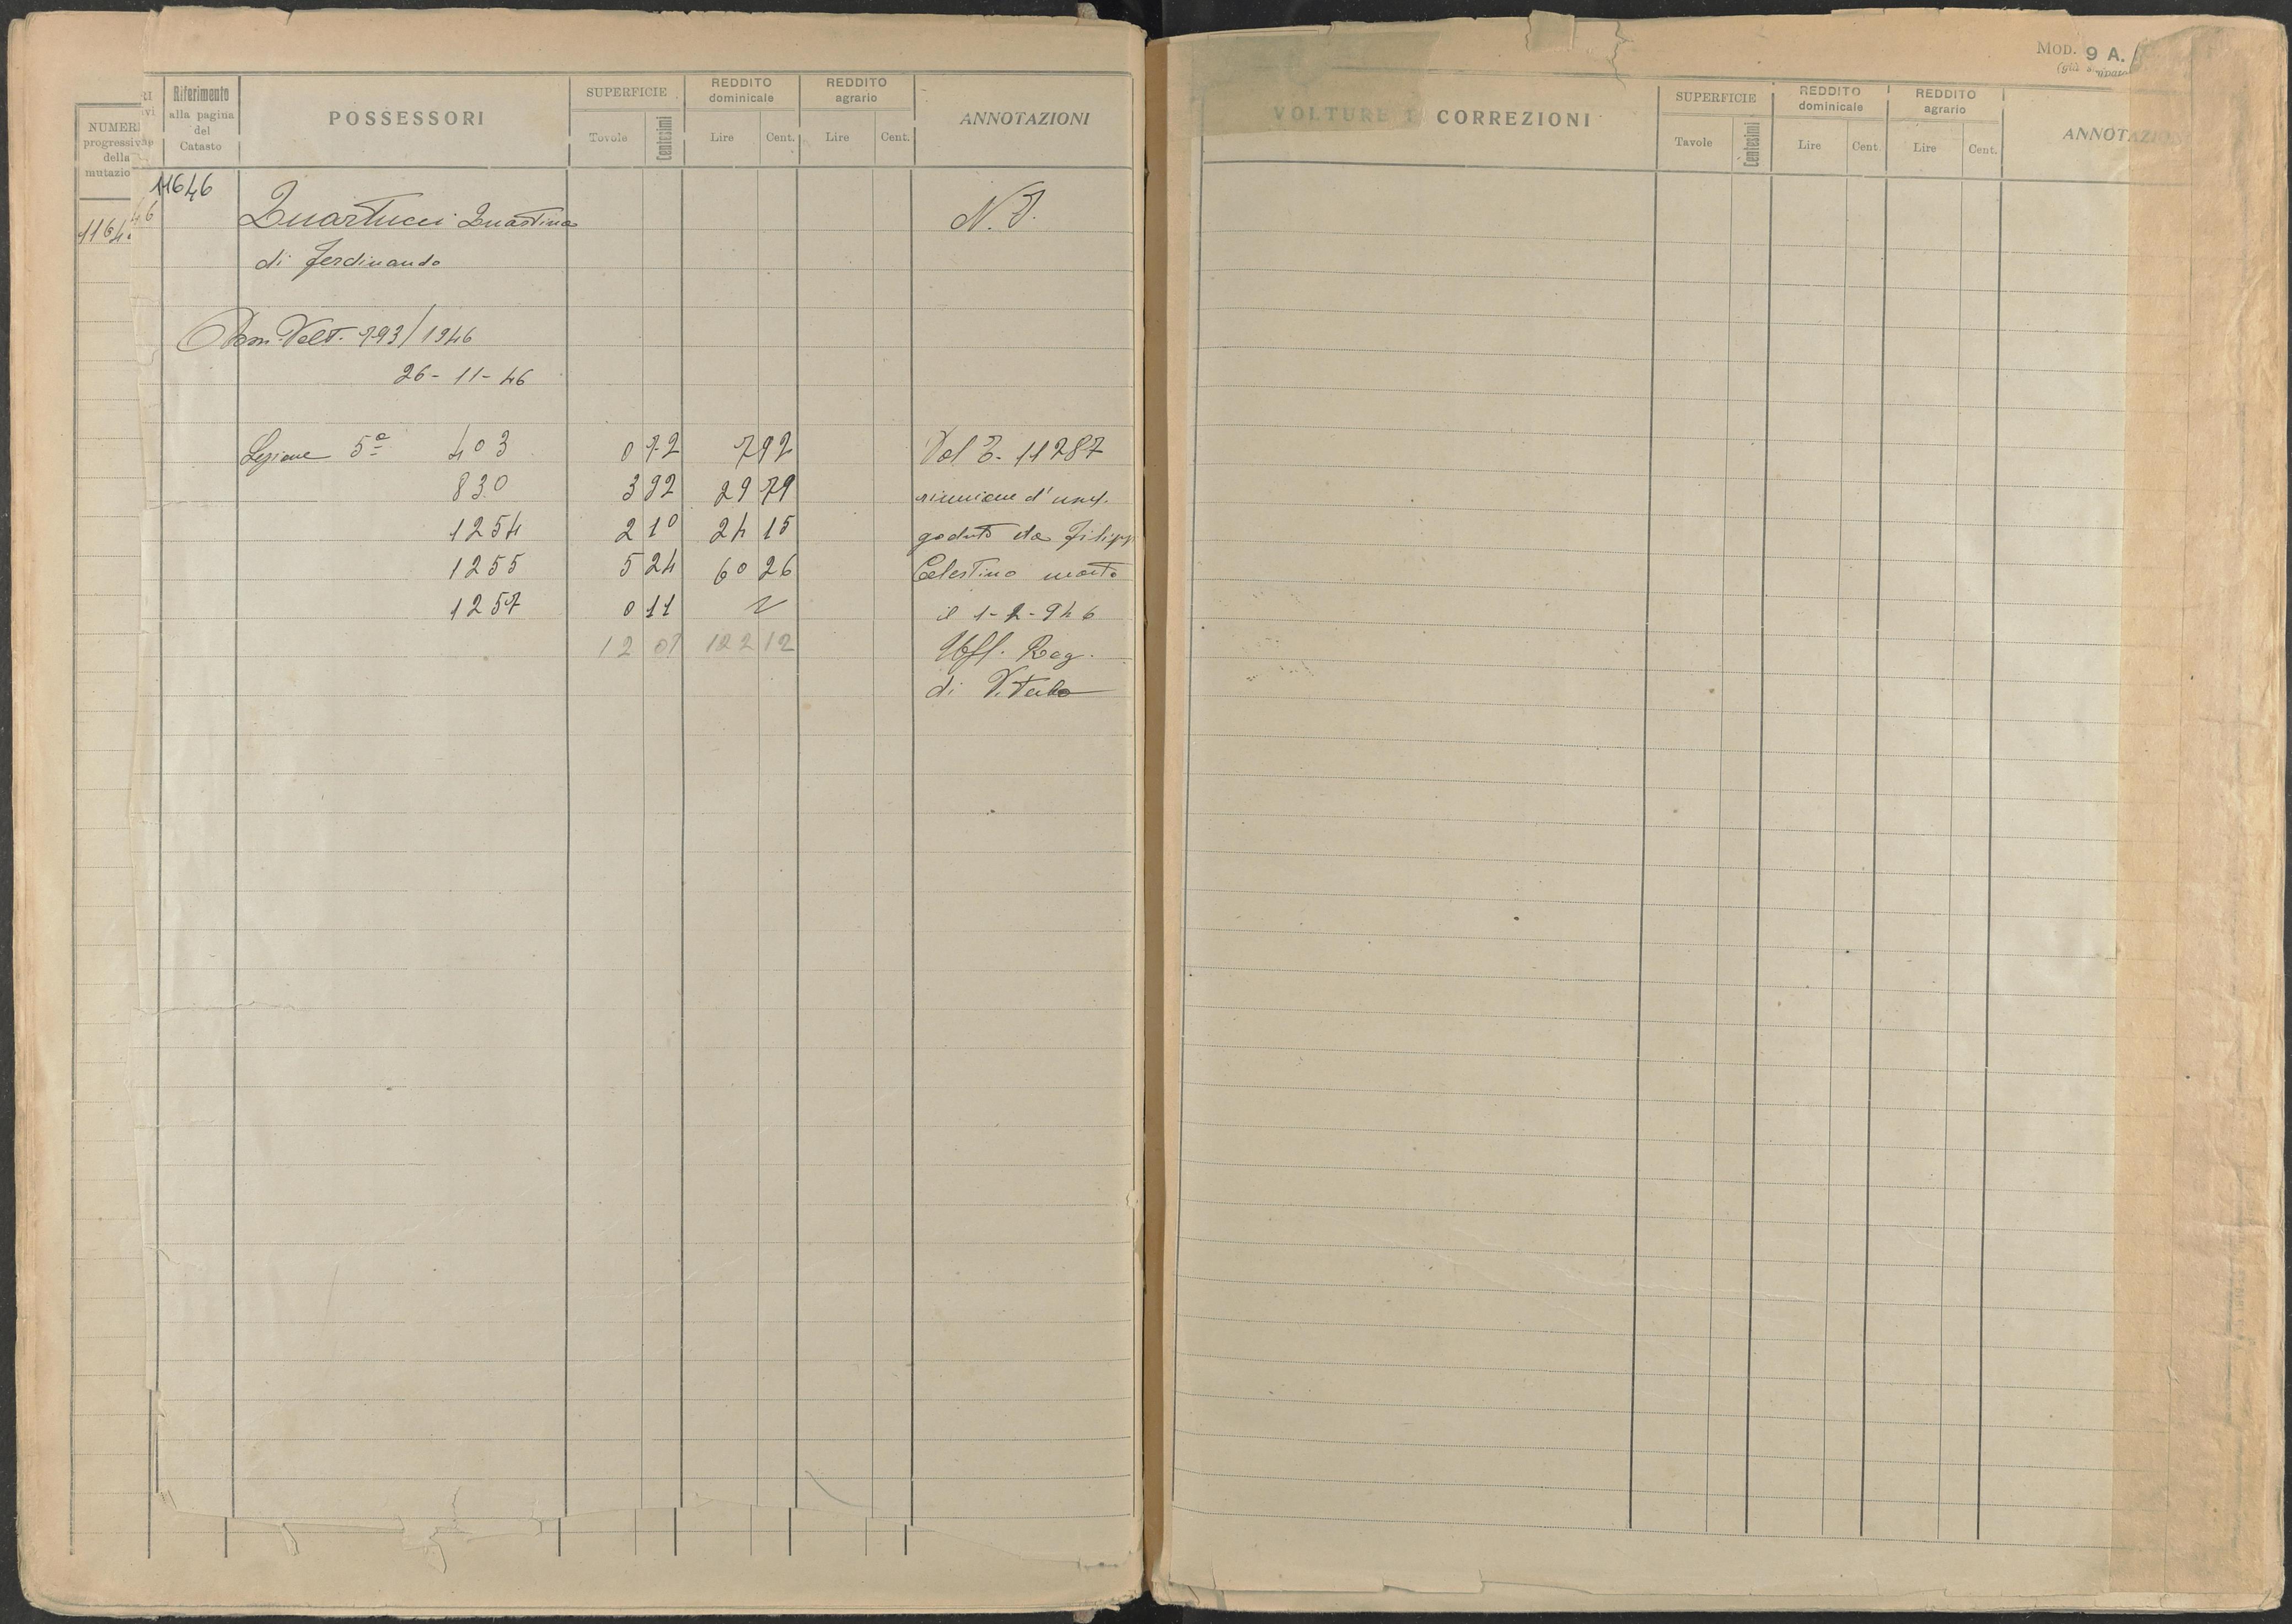 NUMERI
progressivi
della
mutazio
Riferimento
alla pagina
del
Catasto
POSSESSORI
SUPERFICIE
Tavole
Centesimi
REDDITO
dominicale
Lire
Cent.
REDDITO
agrario
Lire
Cent.
ANNOTAZIONI
11646
1164
46
Quartucci Quartina N. T.
di Ferdinando
Dom. Volt. 793/1946
26-11-46
Sezione 5ª 403 0 72 7 92 Vol T. 11787
830 3 92 29 79 riunione d'usuf.
1254 2 10 24 15 goduto da Filipp
1255 5 24 60 26 Celestino morto
1257 0 11 il 1-2-946
12 07 122 12 Uff. Reg.
di Viterbo
MOD. 9 A.
VOLTURE E CORREZIONI
SUPERFICIE
Tavole
Centesimi
REDDITO
dominicale
Lire
Cent.
REDDITO
agrario
Lire
Cent.
ANNOTAZION